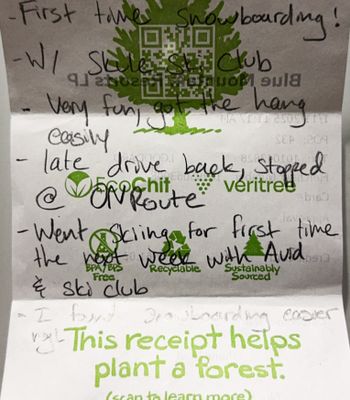 - First time snowboarding!
- W/ Skule Ski Club
Blue Mountain Resorts LP
- Very fun, got the hang
easily
- late drive back, stopped
EcoChit veritree
@ ONRoute
- Went skiing for first time
the next week with Avid
BPA/BPS Free
Recyclable
Sustainably Sourced
& ski club
- I found snowboarding easier
This receipt helps
plant a forest.
(scan to learn more)